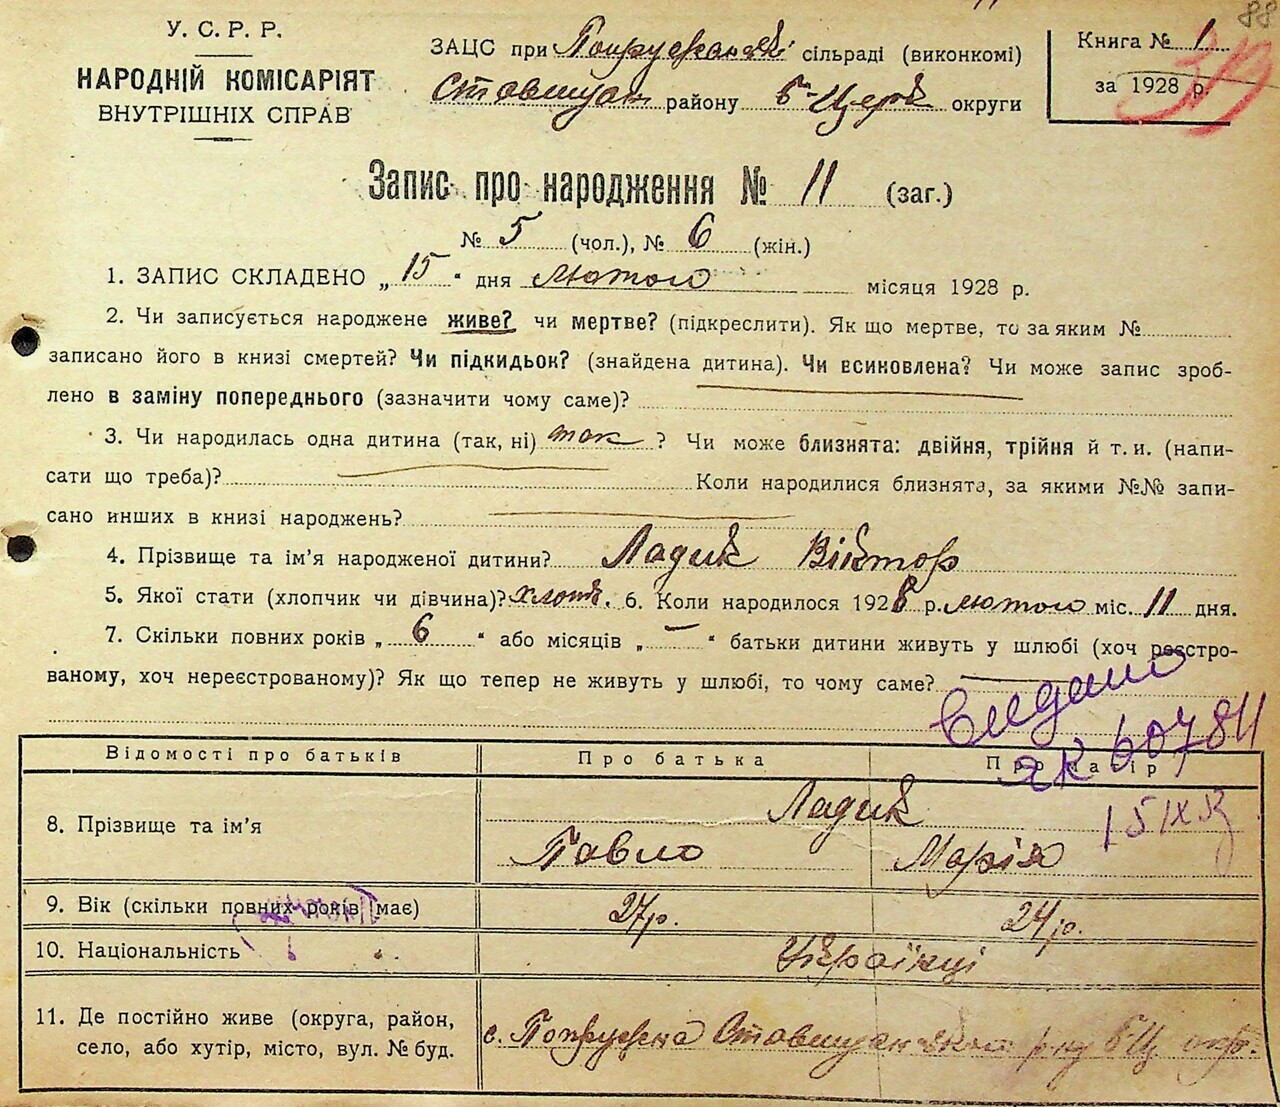 88
У. С. Р. Р.
НАРОДНІЙ КОМІСАРІЯТ
ВНУТРІШНІХ СПРАВ
ЗАЦС при Попружанській сільраді (виконкомі)
Ставищан. району б-Церк округи
Книга № 1
за 1928 р.
Запис про народження № 11 (заг.)
№ 5 (чол.), № 6 (жін.)
1. ЗАПИС СКЛАДЕНО „15“ дня лютого місяця 1928 р.
2. Чи записується народжене живе? чи мертве? (підкреслити). Як що мертве, то за яким №
записано його в книзі смертей? Чи підкидьок? (знайдена дитина). Чи всиновлена? Чи може запис зроб-
лено в заміну попереднього (зазначити чому саме)?
3. Чи народилась одна дитина (так, ні) так ? Чи може близнята: двійня, трійня й т. и. (напи-
сати що треба)? Коли народилися близнята, за якими №№ запи-
сано инших в книзі народжень?
4. Прізвище та ім’я народженої дитини? Ладик Віктор
5. Якої стати (хлопчик чи дівчина)? хлопч. 6. Коли народилося 1928 р. лютого міс. 11 дня.
7. Скільки повних років „ 6 “ або місяців „ — “ батьки дитини живуть у шлюбі (хоч реєстро-
ваному, хоч нереєстрованому)? Як що тепер не живуть у шлюбі, то чому саме? —
Видано
ЯК 607811
15 IX
Відомості про батьків Про батька Про матір
8. Прізвище та ім’я Ладик
Павло Марія
9. Вік (скільки повних років має) 27р. 24р.
10. Національність Українці
11. Де постійно живе (округа, район,
село, або хутір, місто, вул. № буд.
с. Попружна Ставищанського р-ну БЦ окр.